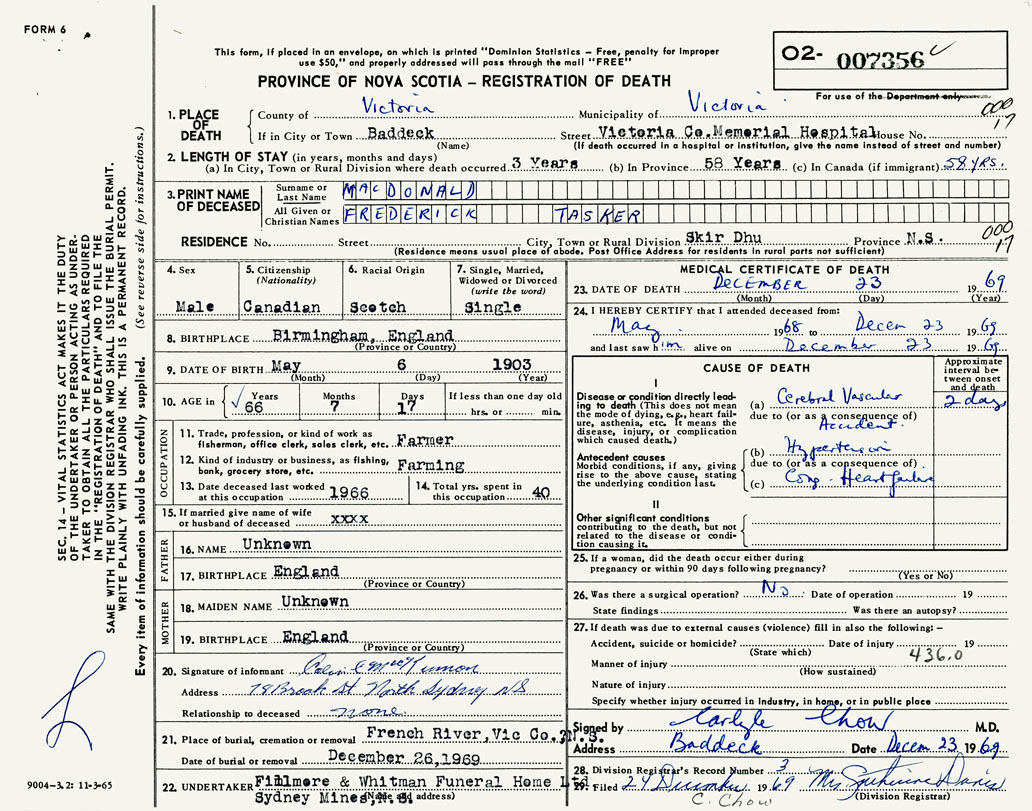 FORM 6
This form, if placed in an envelope, on which is printed "Dominion Statistics – Free, penalty for improper
use $50," and properly addressed will pass through the mail "FREE"
PROVINCE OF NOVA SCOTIA – REGISTRATION OF DEATH
O2- 007356
For use of the Department only
1. PLACE OF DEATH
County of Victoria Municipality of Victoria
000 17
If in City or Town Baddeck Street Victoria Co.Memorial Hospital House No.
(Name) (If death occurred in a hospital or institution, give the name instead of street and number)
2. LENGTH OF STAY (in years, months and days)
(a) In City, Town or Rural Division where death occurred 3 Years (b) In Province 58 Years (c) In Canada (if immigrant) 58 YRS.
3. PRINT NAME OF DECEASED
Surname or Last Name MACDONALD
All Given or Christian Names FREDERICK TASKER
RESIDENCE No. Street City, Town or Rural Division Skir Dhu Province N.S.
000 17
(Residence means usual place of abode. Post Office Address for residents in rural parts not sufficient)
4. Sex
Male
5. Citizenship (Nationality)
Canadian
6. Racial Origin
Scotch
7. Single, Married, Widowed or Divorced (write the word)
Single
8. BIRTHPLACE Birmingham, England
(Province or Country)
9. DATE OF BIRTH May 6 1903
(Month) (Day) (Year)
10. AGE in Years Months Days If less than one day old
66 7 17 hrs. or min.
OCCUPATION
11. Trade, profession, or kind of work as
fisherman, office clerk, sales clerk, etc. Farmer
12. Kind of industry or business, as fishing,
bank, grocery store, etc. Farming
13. Date deceased last worked at this occupation 1966
14. Total yrs. spent in this occupation 40
15. If married give name of wife
or husband of deceased xxxx
FATHER
16. NAME Unknown
17. BIRTHPLACE England
(Province or Country)
MOTHER
18. MAIDEN NAME Unknown
19. BIRTHPLACE England
(Province or Country)
20. Signature of informant Colin C MacKinnon
Address 78 Brook St. North Sydney NS
Relationship to deceased none
21. Place of burial, cremation or removal French River,Vic Co., N.S.
Date of burial or removal December 26,1969
22. UNDERTAKER Fillmore & Whitman Funeral Home Ltd
Sydney Mines,N.S.
(Name and address)
MEDICAL CERTIFICATE OF DEATH
23. DATE OF DEATH DECEMBER 23 1969
(Month) (Day) (Year)
24. I HEREBY CERTIFY that I attended deceased from:
May 1968 to Decem 23 1969
and last saw him alive on December 23 1969
CAUSE OF DEATH
Approximate interval between onset and death
I
Disease or condition directly leading to death (This does not mean the mode of dying, e.g., heart failure, asthenia, etc. It means the disease, injury, or complication which caused death.)
(a) Cerebral Vascular 2 days
due to (or as a consequence of)
Accident
Antecedent causes
Morbid conditions, if any, giving rise to the above cause, stating the underlying condition last.
(b) Hypertension
due to (or as a consequence of)
(c) Cong. Heart failure
II
Other significant conditions
contributing to the death, but not related to the disease or condition causing it.
25. If a woman, did the death occur either during
pregnancy or within 90 days following pregnancy?
(Yes or No)
26. Was there a surgical operation? No Date of operation 19
State findings Was there an autopsy?
27. If death was due to external causes (violence) fill in also the following: –
Accident, suicide or homicide? Date of injury 19
(State which) 436.0
Manner of injury
(How sustained)
Nature of injury
Specify whether injury occurred in Industry, in home, or in public place
Signed by Carlyle Chow M.D.
Address Baddeck Date Decem 23 1969
28. Division Registrar's Record Number 3
29. Filed 24 December 1969
(Division Registrar)
C. Chow
SEC. 14 – VITAL STATISTICS ACT MAKES IT THE DUTY
OF THE UNDERTAKER OR PERSON ACTING AS UNDER-
TAKER TO OBTAIN ALL THE PARTICULARS REQUIRED
IN THE "REGISTRATION OF DEATH" AND TO FILE THE
SAME WITH THE DIVISION REGISTRAR WHO SHALL ISSUE THE BURIAL PERMIT.
WRITE PLAINLY WITH UNFADING INK. THIS IS A PERMANENT RECORD.
Every item of information should be carefully supplied. (See reverse side for instructions.)
9004-3.2: 11-3-65